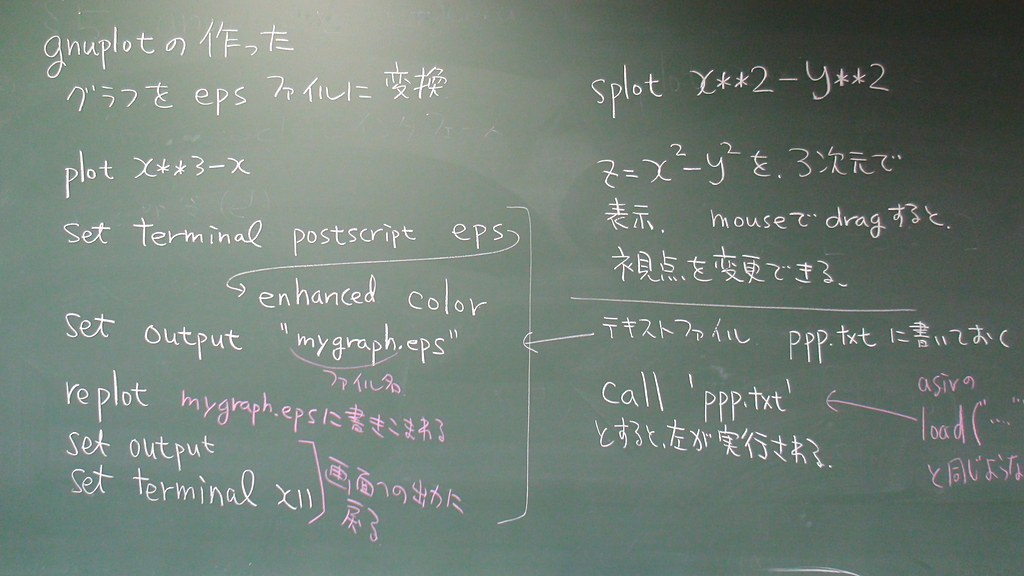 gnuplotの作った
グラフを eps ファイルに変換
plot x**3-x
set terminal postscript eps
enhanced color
set output "mygraph.eps"
ファイル名
replot mygraph.epsに書きこまれる
set output
set terminal x11
画面への出力に
戻る
splot x**2-y**2
z=x²-y²を、3次元で
表示、 mouseでdragすると、
視点を変更できる。
テキストファイル ppp.txt に書いておく
call 'ppp.txt'
とすると、左が実行される。
asirの
load("...."
と同じような